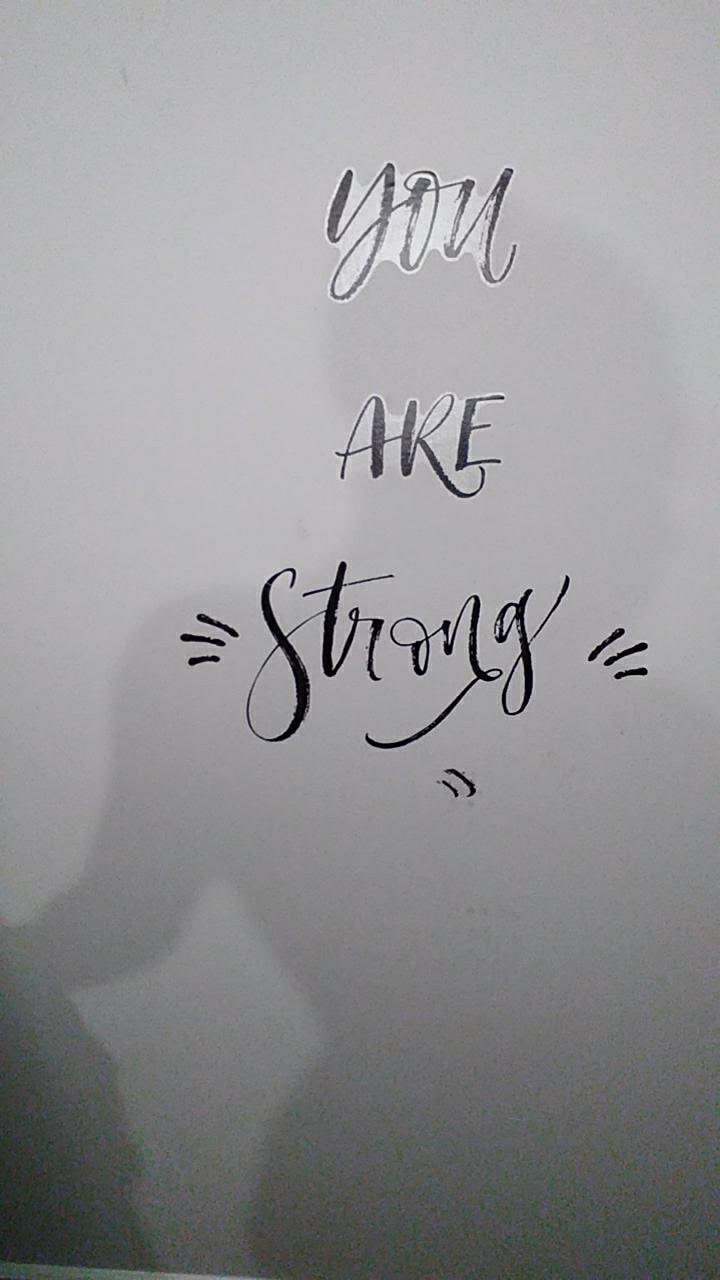 you
ARE
Strong